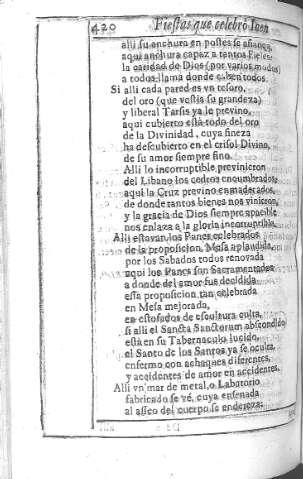 420 Fiestas que celebrò Iaen
alli su anchura en postes se afiança,
aqui anchura capaz a tantos Fieles
la caridad de Dios (por varios modos)
a todos llama donde caben todos.
Si alli cada pared es vn tesoro,
del oro (que vestia su grandeza)
y liberal Tarsis ya le previno,
aqui cubierto està todo del oro
de la Divinidad, cuya fineza
ha descubierto en el crisol Divino,
de su amor siempre fino.
Alli lo incorruptible previnieron
del Libano los cedros encumbrados,
aqui la Cruz previno enmaderados,
de donde tantos bienes nos vinieron,
y la gracia de Dios siempre apacible
nos enlaza a la gloria incorruptible.
Alli estavan los Panes celebrados
de la proposicion, Mesa aplaudida,
por los Sabados todos renovada
aqui los Panes son Sacramentados
a donde del amor fue
essa proposicion tan celebrada
en Mesa mejorada,
en estofados de escultura culta,
si alli el Sancta Sanctorum abscondido
està en su Tabernaculo lucido,
el Santo de los Santos ya se oculta,
enfermo con achaques diferentes,
y accidentes de amor en accidentes.
Alli vn mar de metal, o Labatorio
fabricado se vè, cuya ensenada
al asseo del cuerpo se endereza: